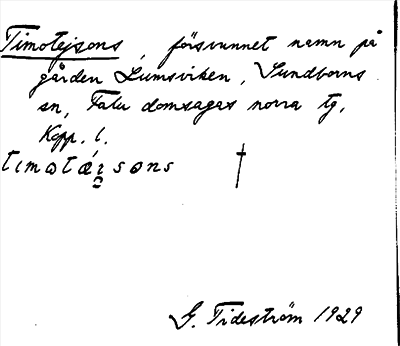 Timotejsons, försvunnet namn på
gården Lumsviken, Sundborns
sn, Falu domsagas norra tg,
Kopp. l.
tɩmɷtǽɩ̯sɷns †
G. Tideström 1929